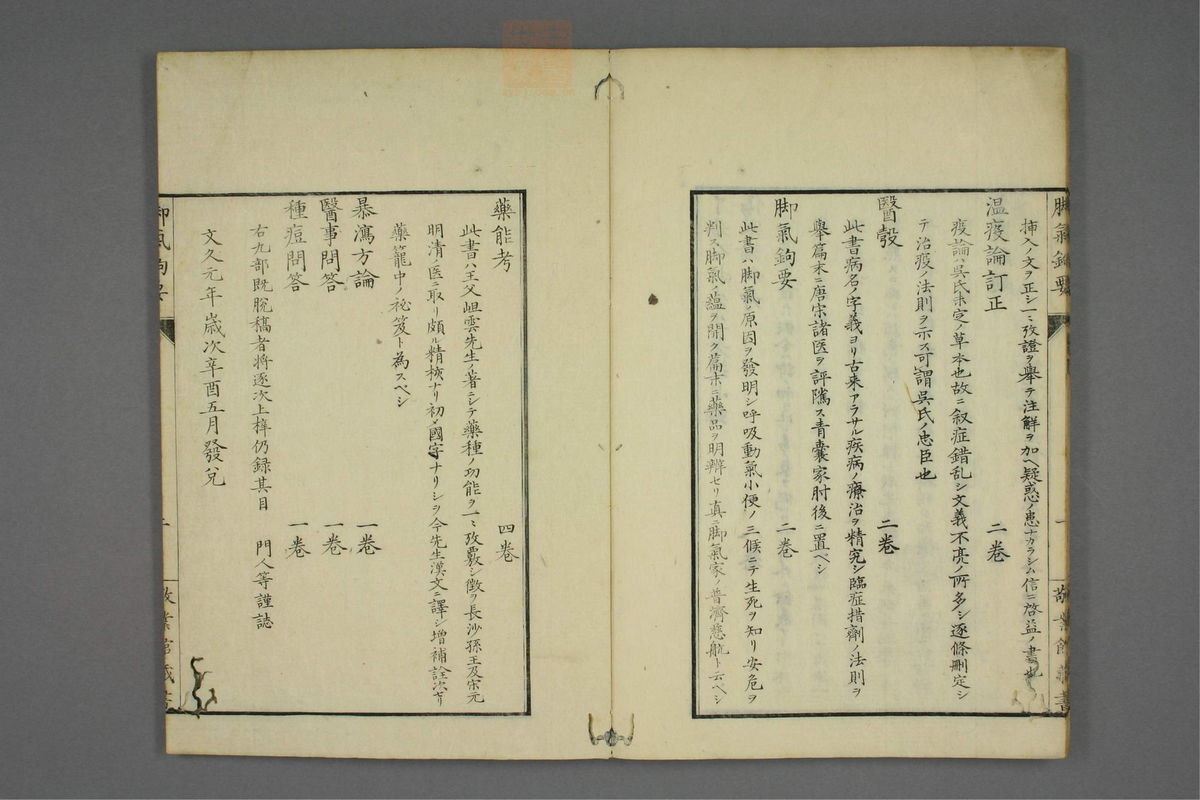 挿入ノ文ヲ正シ一〻攷證ヲ舉テ注解ヲ加ヘ疑惑ノ患ナカラシム信ニ啓益ノ書也
温疫論訂正　二卷
疫論ハ呉氏未定ノ草本也故ニ叙症錯乱シ文義不亮ノ所多シ逐條刪定シ
テ治疫ノ法則ヲ示ス可謂呉氏ノ忠臣也
醫彀　二卷
此書病名ノ字義ヨリ古来アラサル疾病ノ療治ヲ精究シ臨症措劑ノ法則ヲ
舉篇末ニ唐宋諸医ヲ評隲ス青囊家肘後ニ置ベシ
脚氣鉤要　二卷
此書ハ脚氣ノ原因ヲ發明シ呼吸動氣小便ノ三候ニテ生死ヲ知リ安危ヲ
判ス脚氣ノ蘊ヲ闡ク篇末ニ藥品ヲ明辨セリ真ニ脚氣家ノ普濟慈航ト云ベシ
藥能考　四卷
此書ハ王父岨雲先生ノ著ニシテ藥種ノ功能ヲ一〻攷覈シ徴ヲ長沙孫王及宋元
明清ノ医ニ取リ頗ル精核ナリ初メ國字ナリシヲ今先生漢文ニ譯シ増補詮次セリ
藥籠中ノ祕笈ト為スベシ
暴瀉方論　一卷
醫事問答　一卷
種痘問答　一卷
右九部既脫稿者將逐次上梓仍録其目　門人等謹誌
文久元年歳次辛酉五月發兌